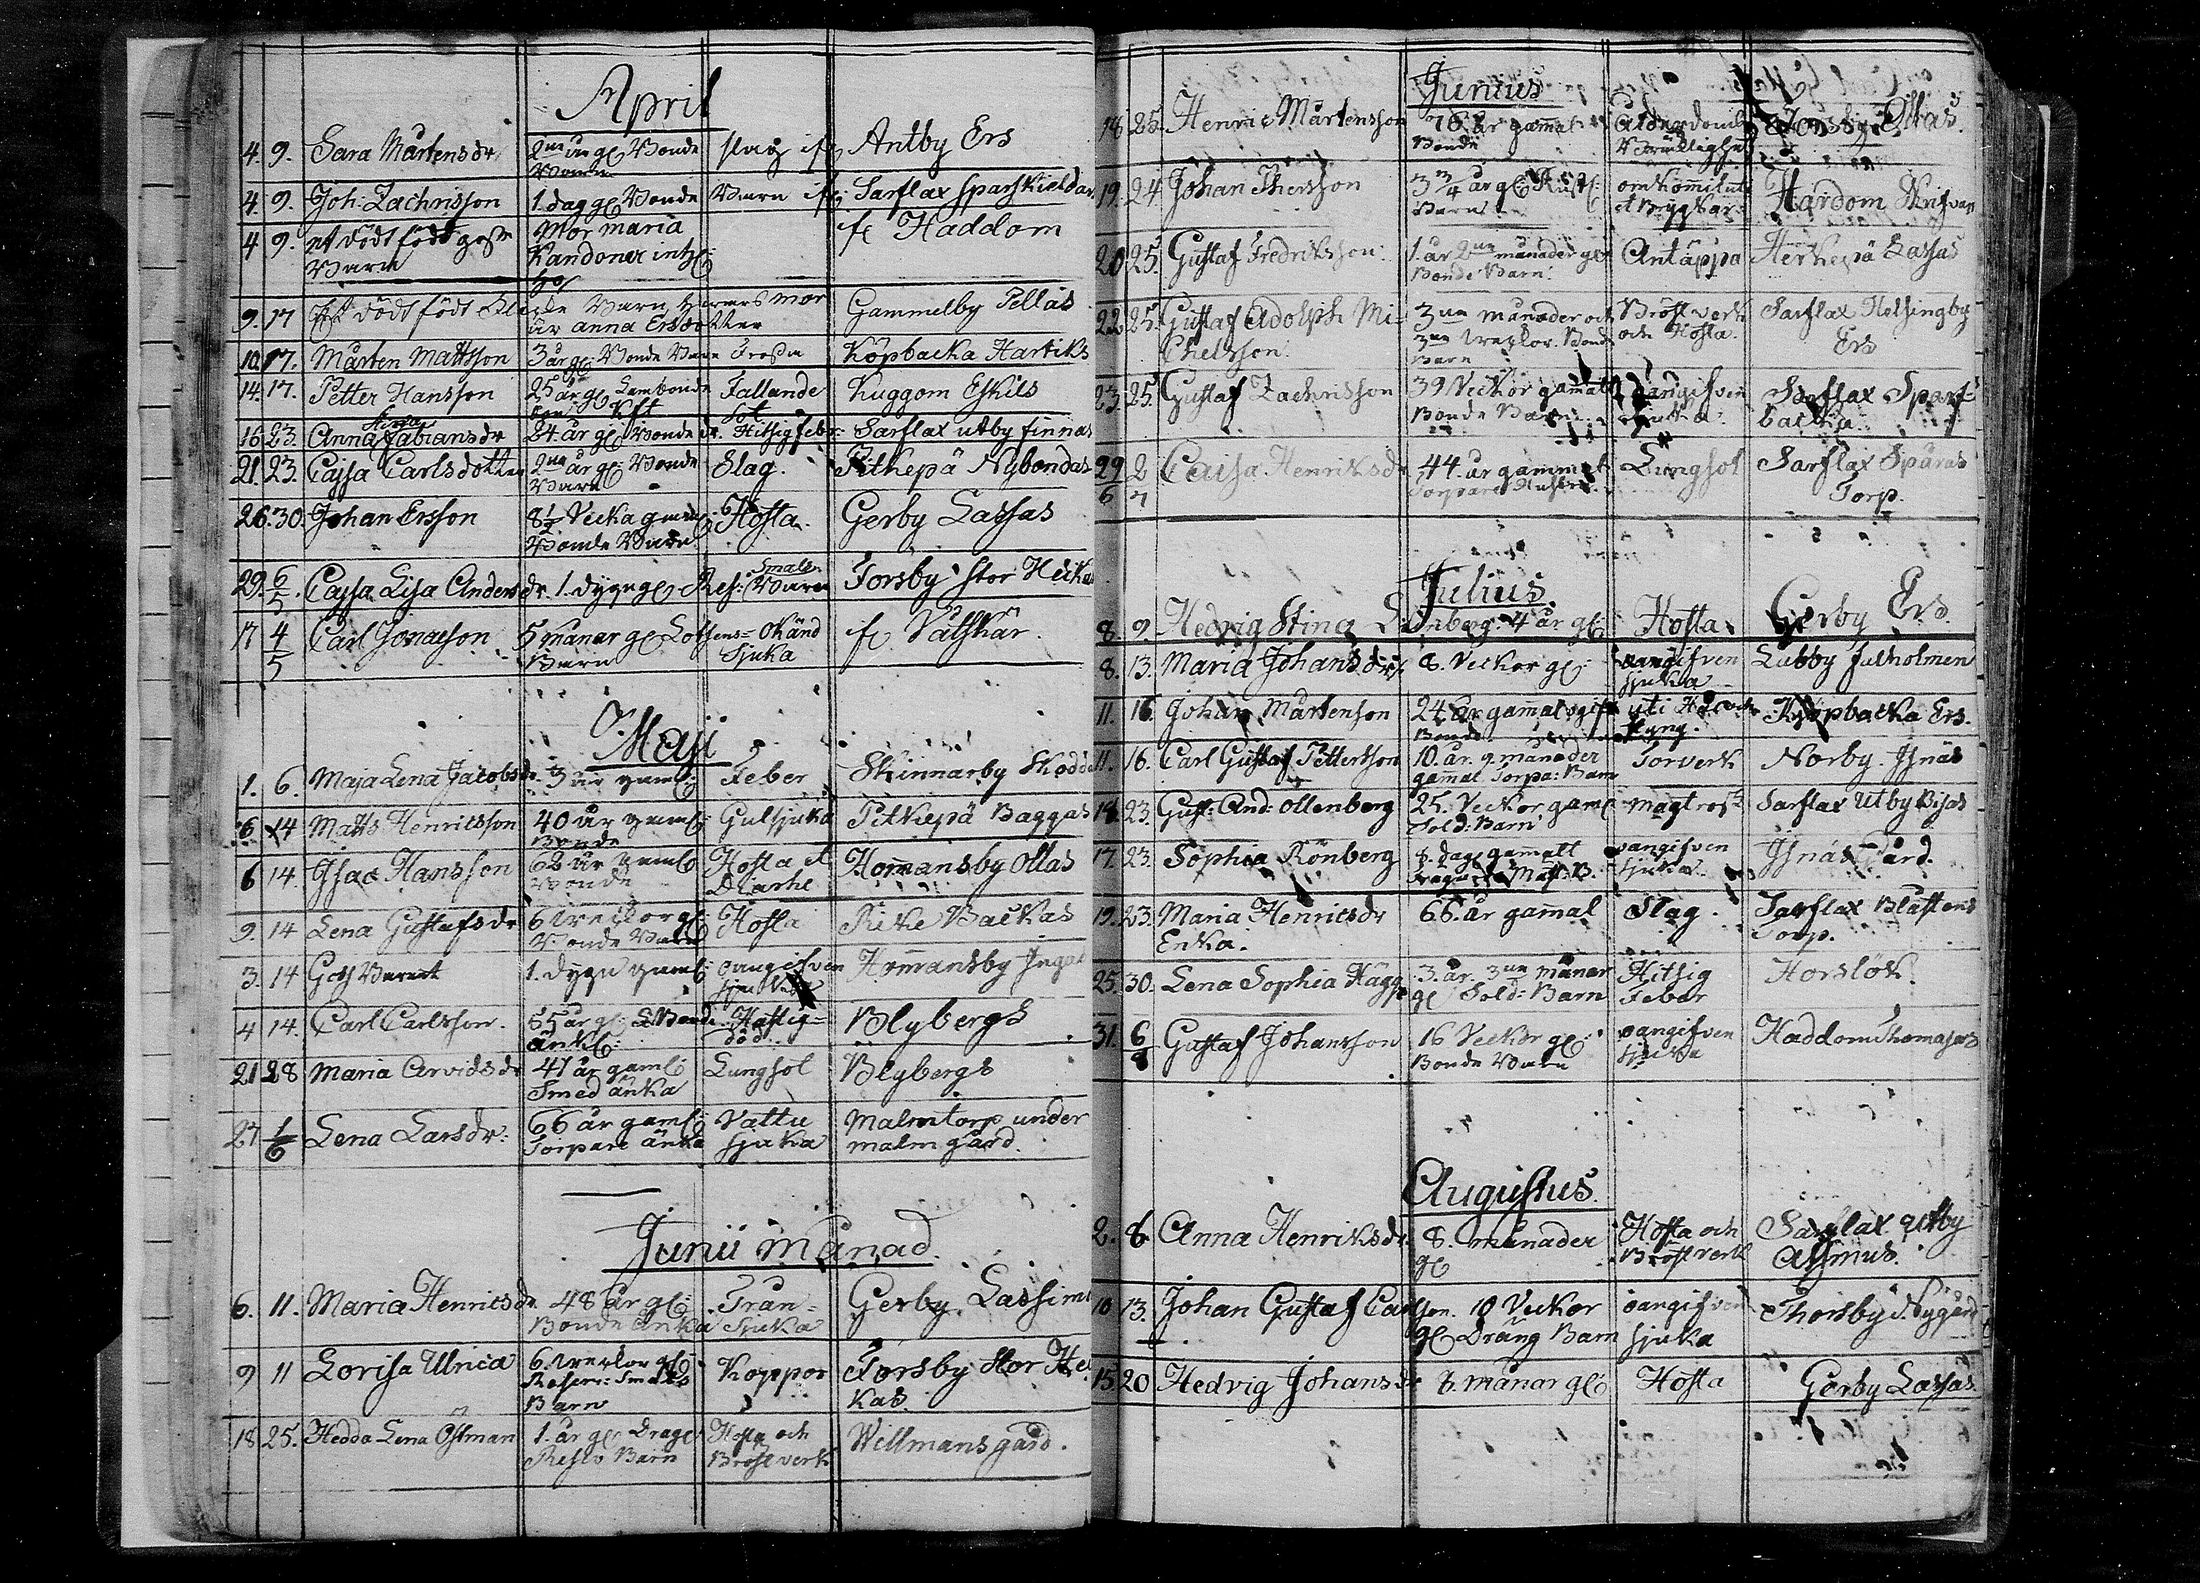 April
4. 9. Sara Mårtensdr 2ne år gl Bonde Barn slag ifr Antby Ers
4. 9. Joh: Zachrisson 1. dag gl Bonde Barn ifr Sarflax Sparskieldar
4 9. et dödt födt gosse Barn Mor maria ifr Haddom
9. 17 Et dödt födt Barn mor är anna Ersdotter Gammelby Pellas
10. 17. Mårten Mattsson 3 år gl: Bonde Barn Trossn Köpbacka Hartiks
14. 17. Petter Hansson 25 år gl Fallande sot Kuggom Eskils
16 23. Anna Fabiansdr 24. år gl Bonde dr. Hitsig feber Sarflax utby finnas
21. 23. Cajsa Carlsdotter 2ne år gl: Bonde Barn Slag. Pitkepä Nybondas
26. 30. Johan Ersson 8½ Vecka gaml Bonde Barn Hosta. Gerby Lassas
29. 6/5. Cajsa Lisa Andersdr. 1. dygn gl Res: Smals Barn Forsby Stor Heikas
17 4/5 Carl Jonaeson 5 månar gl Lotsens Barn Okänd Sjuka ifr Våtskär.
Maji
1. 6. Maja Lena Jacobsdr 3 år gaml: Feber Skinnarby Skodda
6 14 Matts Henricsson 40 år gaml: Bonde Gulsjuka Pitkepä Baggas
6 14. Isac Hansson 62 år gaml Bonde Hosta et Diarhe Hommansby Ollas
9. 14 Lena Gustafsdr 6 Weckor gl: Bonde Barn Hosta Rike Backas
3. 14 Gosse Barnet 1. dygn gaml: oangifven sjukdom Hommansby Ingas
4 14. Carl Carlsson. 55 år gl: Bonde änkl: Hastig död Blybergs
21 28 Maria Arvidsdr 47 år gaml: Smed änka Lungsot Blybergs
27 1/6 Lena Larsdr: 66 år gaml: Torpare änka Vattu sjuka Malmtorp under malmgård.
Junii månad.
6. 11. Maria Henricsdr. 48 år gl: Bonde änka Trån=Sjuka Gerby. Lassinmt
9 11 Lovisa Ulrica 6. Weckor gl: Reserv: Smeds Barn Koppor Forsby Stor Heikas.
18 25. Hedda Lena Östman 1. år gl Drag: Reslv Barn Hosta och Bröstverk Willmansgård.
Junius
18 25. Henric Mårtensson 76 år gammal Bonde ålderdoms Bräcklighet Forsby Ollas.
19. 24 Johan Thersson 3 3/4 år gl: Rust: Barn omkommit ut et Bryggkar: Hardom Skrifvars
20 25. Gustaf Fredriksson. 1. år 2ne månader gl: Bonde Barn. Antäppa Herkepä Lassas
22 25. Gustaf Adolph Mi=chelsson. 3ne månader och 3ne Weckor. Bonde Barn Bröst verk och Hosta. Sarflax Helsingby Ers
23. 25. Gustaf Zachrisson 39 Veckor gammalt Bonde Barn. oangifven sjuka. Sarflax Spars=backa
29/6 2/7 Caisa Henriksdr 44 år gammal Torpare Hustru. Lungsot Sarflax Spåras Torp.
Julius.
8. 9. Hedvig Stina Lönberg. 4 år gl: Hosta. Gerby Ers.
8. 13. Maria Johansdr. 8. Veckor gl: oangifven sjuka Labby falholmen
11. 16. Johan Mårtenson 24 år gammal ogift Bonde uti Håll och Styng. Kjöpbacka Ers.
11. 16. Carl Gustaf Pettersson 10. år. 9. månader gammal Torpa: Barn Torverk Norby. Isnäs
18. 23. Gust: And: Ollenberg 25. Veckor gaml Sold: Barn magtros Sarflax Utby Bisas
17. 23. Sophia Rönberg 8. dag gammalt oangifven sjuka Isnäs Gård.
19. 23. Maria Henricsdr Enka. 66. år gammal Slag. Sarflax Blåstens Torp.
25. 30. Lena Sophia Hägg 3. år. 3ne månar gl Sold: Barn Hitsig Feber Horslök.
31. 6/8 Gustaf Johansson 16 Veckor gl: Bonde Barn oangifven sjuka Haddom Thomasas
Augustus.
2. 6 Anna Henriksdr. 8. månader gl Hosta och Bröstverk Sarflax utby Asmus.
10 13. Johan Gustaf Carlson. 10 Veckor gl Dräng Barn oangifven sjuka Thorsby Nygård
15. 20 Hedvig Johansdr 6. månar gl: Hosta Gerby Lassas